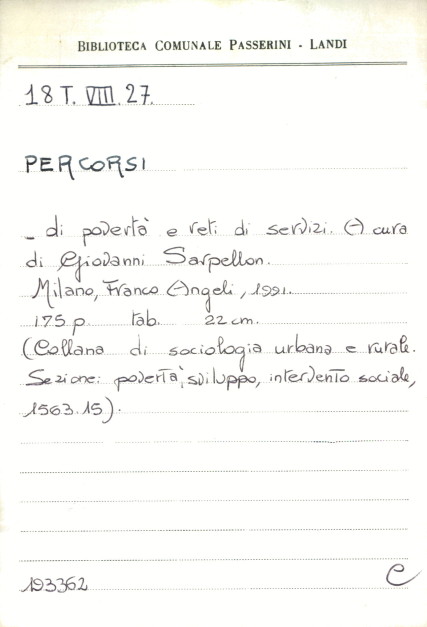 BIBLIOTECA COMUNALE PASSERINI - LANDI
18 T. VIII. 27.
PERCORSI
- di povertà e reti di servizi. A cura
di Giovanni Sarpellon.
Milano, Franco Angeli, 1991.
175 p. tab. 22 cm.
(Collana di sociologia urbana e rurale.
Sezione: povertà, sviluppo, intervento sociale,
1563.15).
193362 C